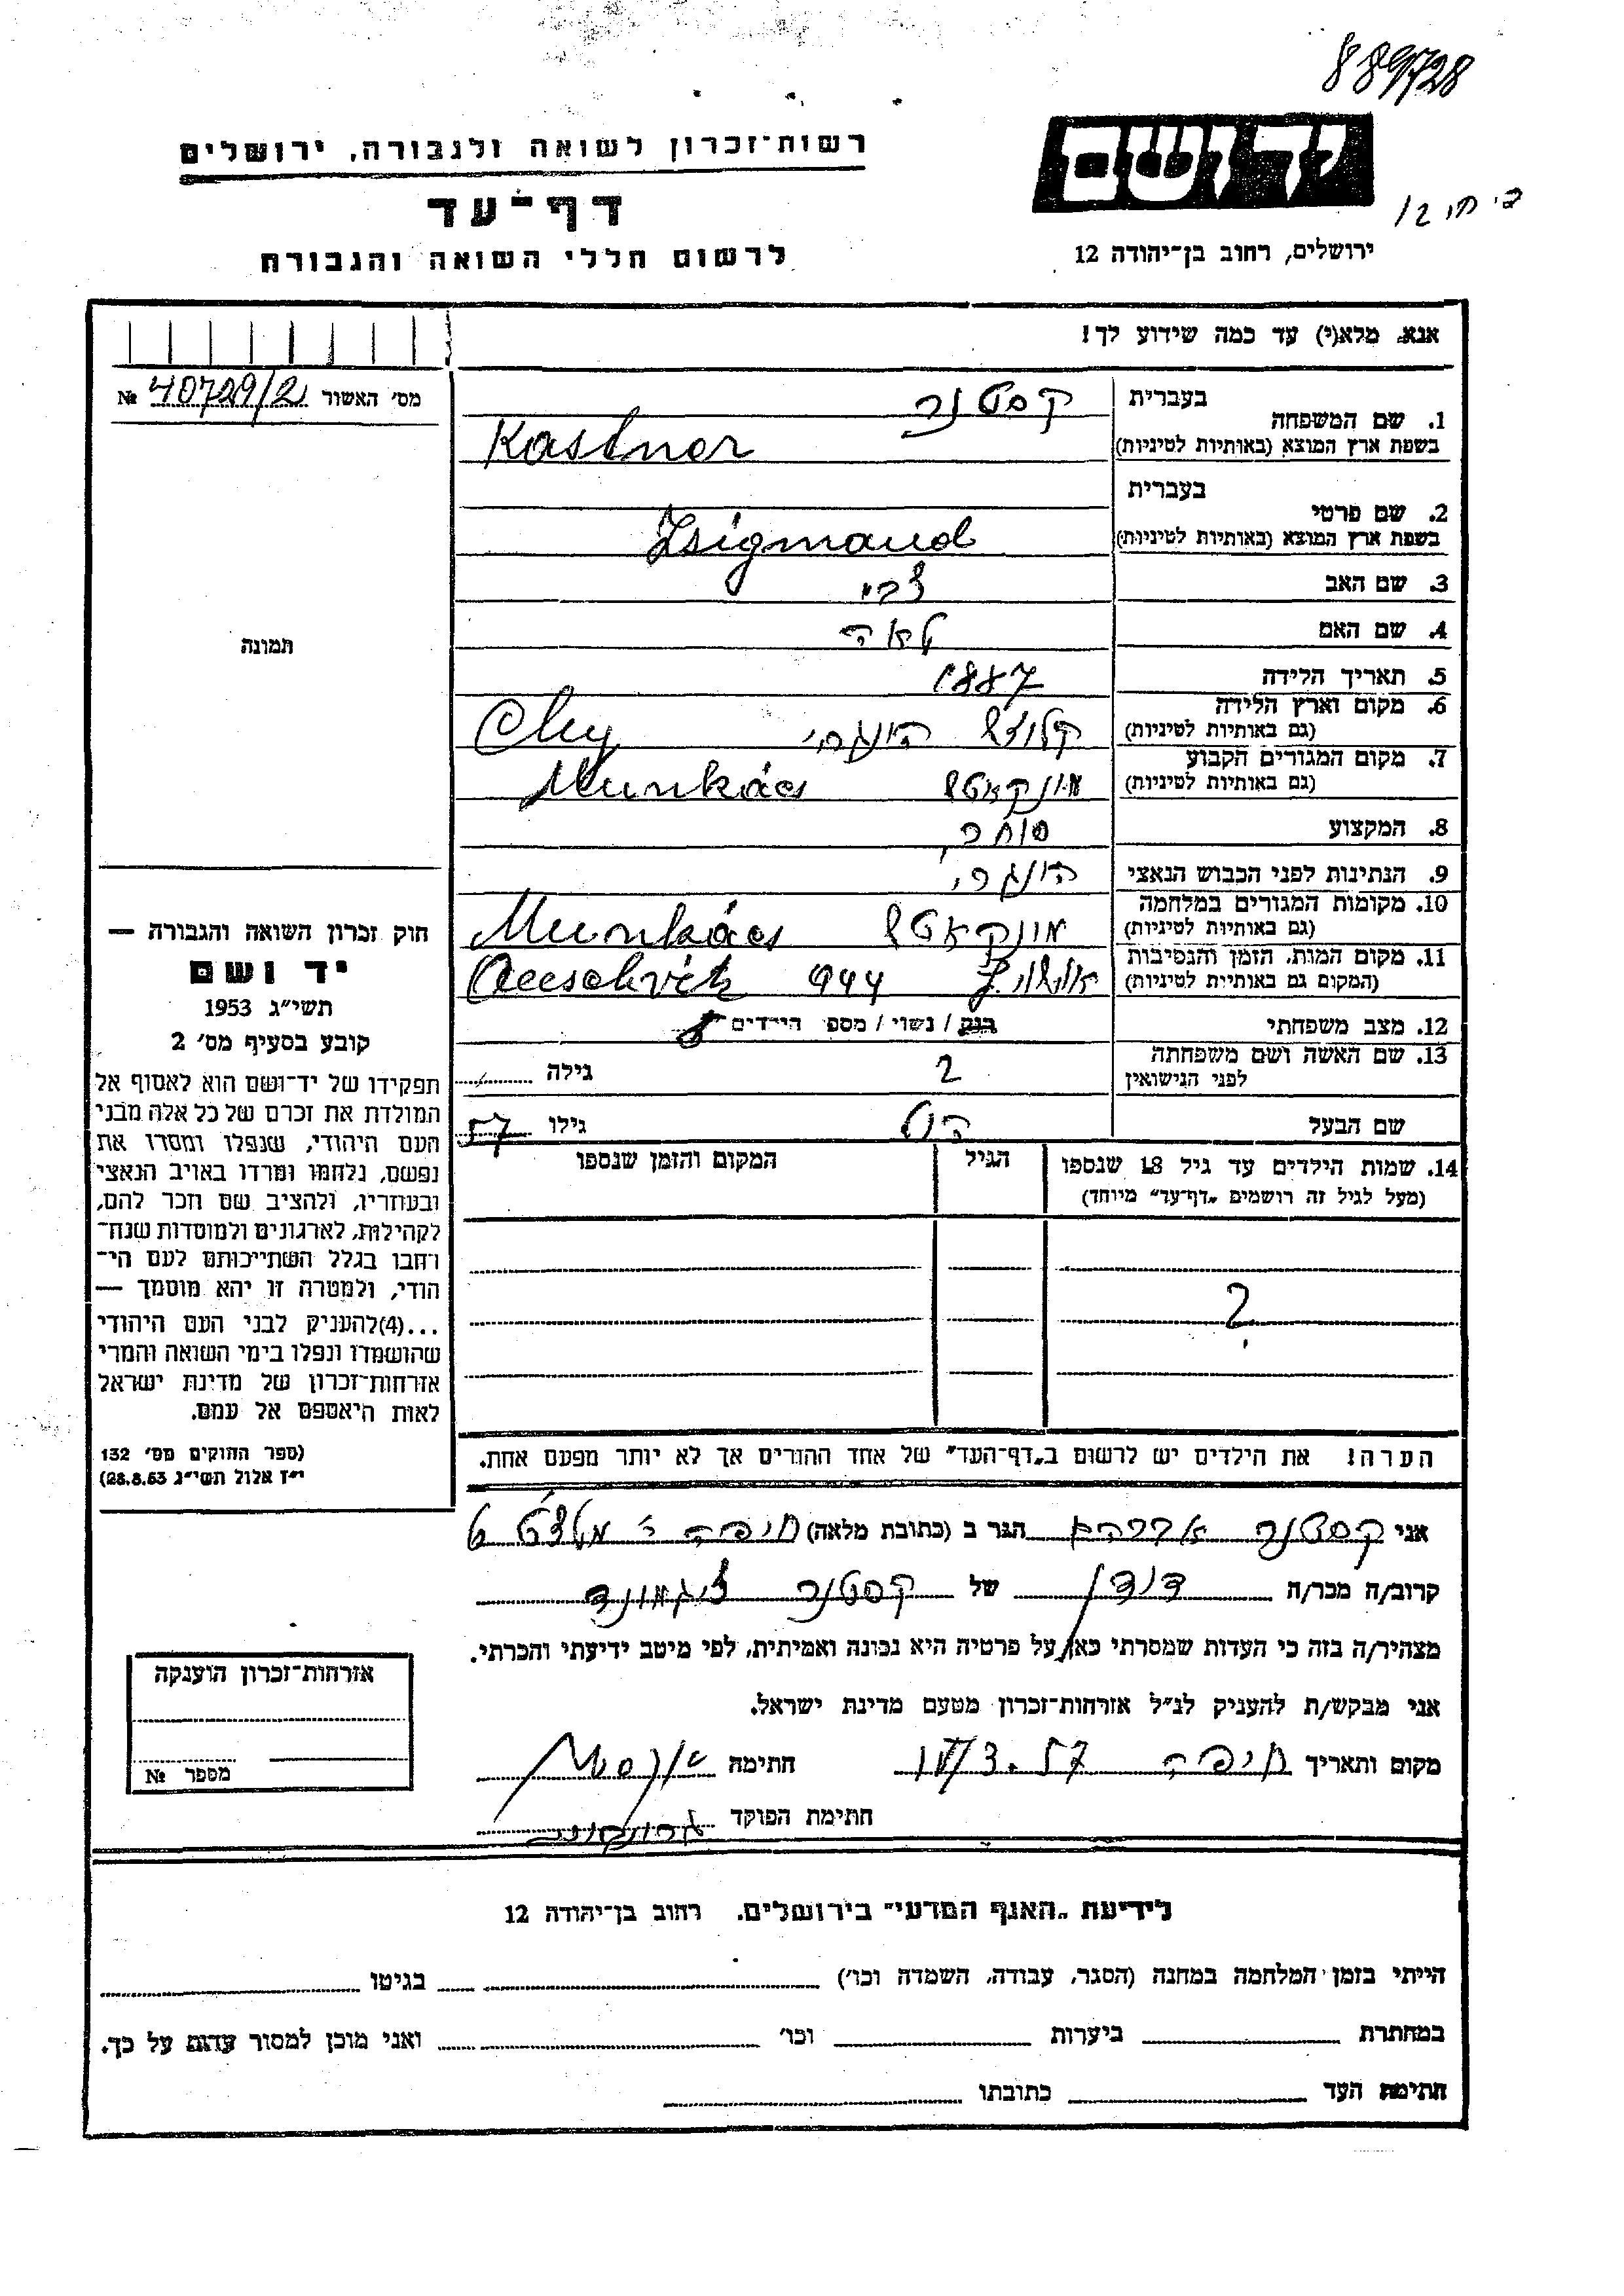 889728
רשות־זכרון לשואה ולגבורה, ירושלים
יד ושם
דף־עד
12
ירושלים, רחוב בן־יהודה 12
לרשום חללי השואה והגבורה
אנא, מלא(י) עד כמה שידוע לך!
מס׳ האשור № 40729/2
1. שם המשפחה
בעברית קסטנר
בשפת ארץ המוצא (באותיות לטיניות) Kastner
2. שם פרטי
בעברית
בשפת ארץ המוצא (באותיות לטיניות) Zsigmond
3. שם האב צבי
4. שם האם
5. תאריך הלידה 1887
6. מקום וארץ הלידה
(גם באותיות לטיניות) הונגרי
7. מקום המגורים הקבוע
(גם באותיות לטיניות) מונקאטש Munkács
8. המקצוע סוחר
9. הנתינות לפני הכבוש הנאצי הונגרי
10. מקומות המגורים במלחמה
(גם באותיות לטיניות) מונקאטש Munkács
11. מקום המות, הזמן והנסיבות
(המקום גם באותיות לטיניות) 944
12. מצב משפחתי רווק / נשוי / מספר הילדים
13. שם האשה ושם משפחתה
לפני הנישואין ? גילה
שם הבעל גילו 57
14. שמות הילדים עד גיל 18 שנספו
(מעל לגיל זה רושמים „דף־עד״ מיוחד)
הגיל
המקום והזמן שנספו
?
הערה! את הילדים יש לרשום ב„דף־העד״ של אחד ההורים אך לא יותר מפעם אחת.
תמונה
חוק זכרון השואה והגבורה —
יד ושם
תשי״ג 1953
קובע בסעיף מס׳ 2
תפקידו של יד־ושם הוא לאסוף אל
המולדת את זכרם של כל אלה מבני
העם היהודי, שנפלו ומסרו את
נפשם, נלחמו ומרדו באויב הנאצי
ובעוזריו, ולהציב שם וזכר להם,
לקהילות, לארגונים ולמוסדות שנח־
רחבו בגלל השתייכותם לעם הי־
הודי, ולמטרה זו יהא מוסמך —
...(4) להעניק לבני העם היהודי
שהושמדו ונפלו בימי השואה והמרי
אזרחות־זכרון של מדינת ישראל
לאות היאספם אל עמם.
(ספר החוקים מס׳ 132
י״ז אלול תשי״ג 28.8.53)
אני קסטנר אברהם הגר ב (כתובת מלאה) חיפה
קרוב/ה מכר/ה דודן של קסטנר זיגמונד
מצהיר/ה בזה כי העדות שמסרתי כאן על פרטיה היא נכונה ואמיתית, לפי מיטב ידיעתי והכרתי.
אני מבקש/ת להעניק לנ״ל אזרחות־זכרון מטעם מדינת ישראל.
מקום ותאריך חיפה 17/3.57 חתימה
חתימת הפוקד
אזרחות־זכרון הוענקה
מספר №
לידיעת „האגף המדעי״ בירושלים, רחוב בן־יהודה 12
הייתי בזמן המלחמה במחנה (הסגר, עבודה, השמדה וכו׳) בגיטו
במחתרת ביערות וכו׳ ואני מוכן למסור עדות על כך.
חתימת העד כתובתו